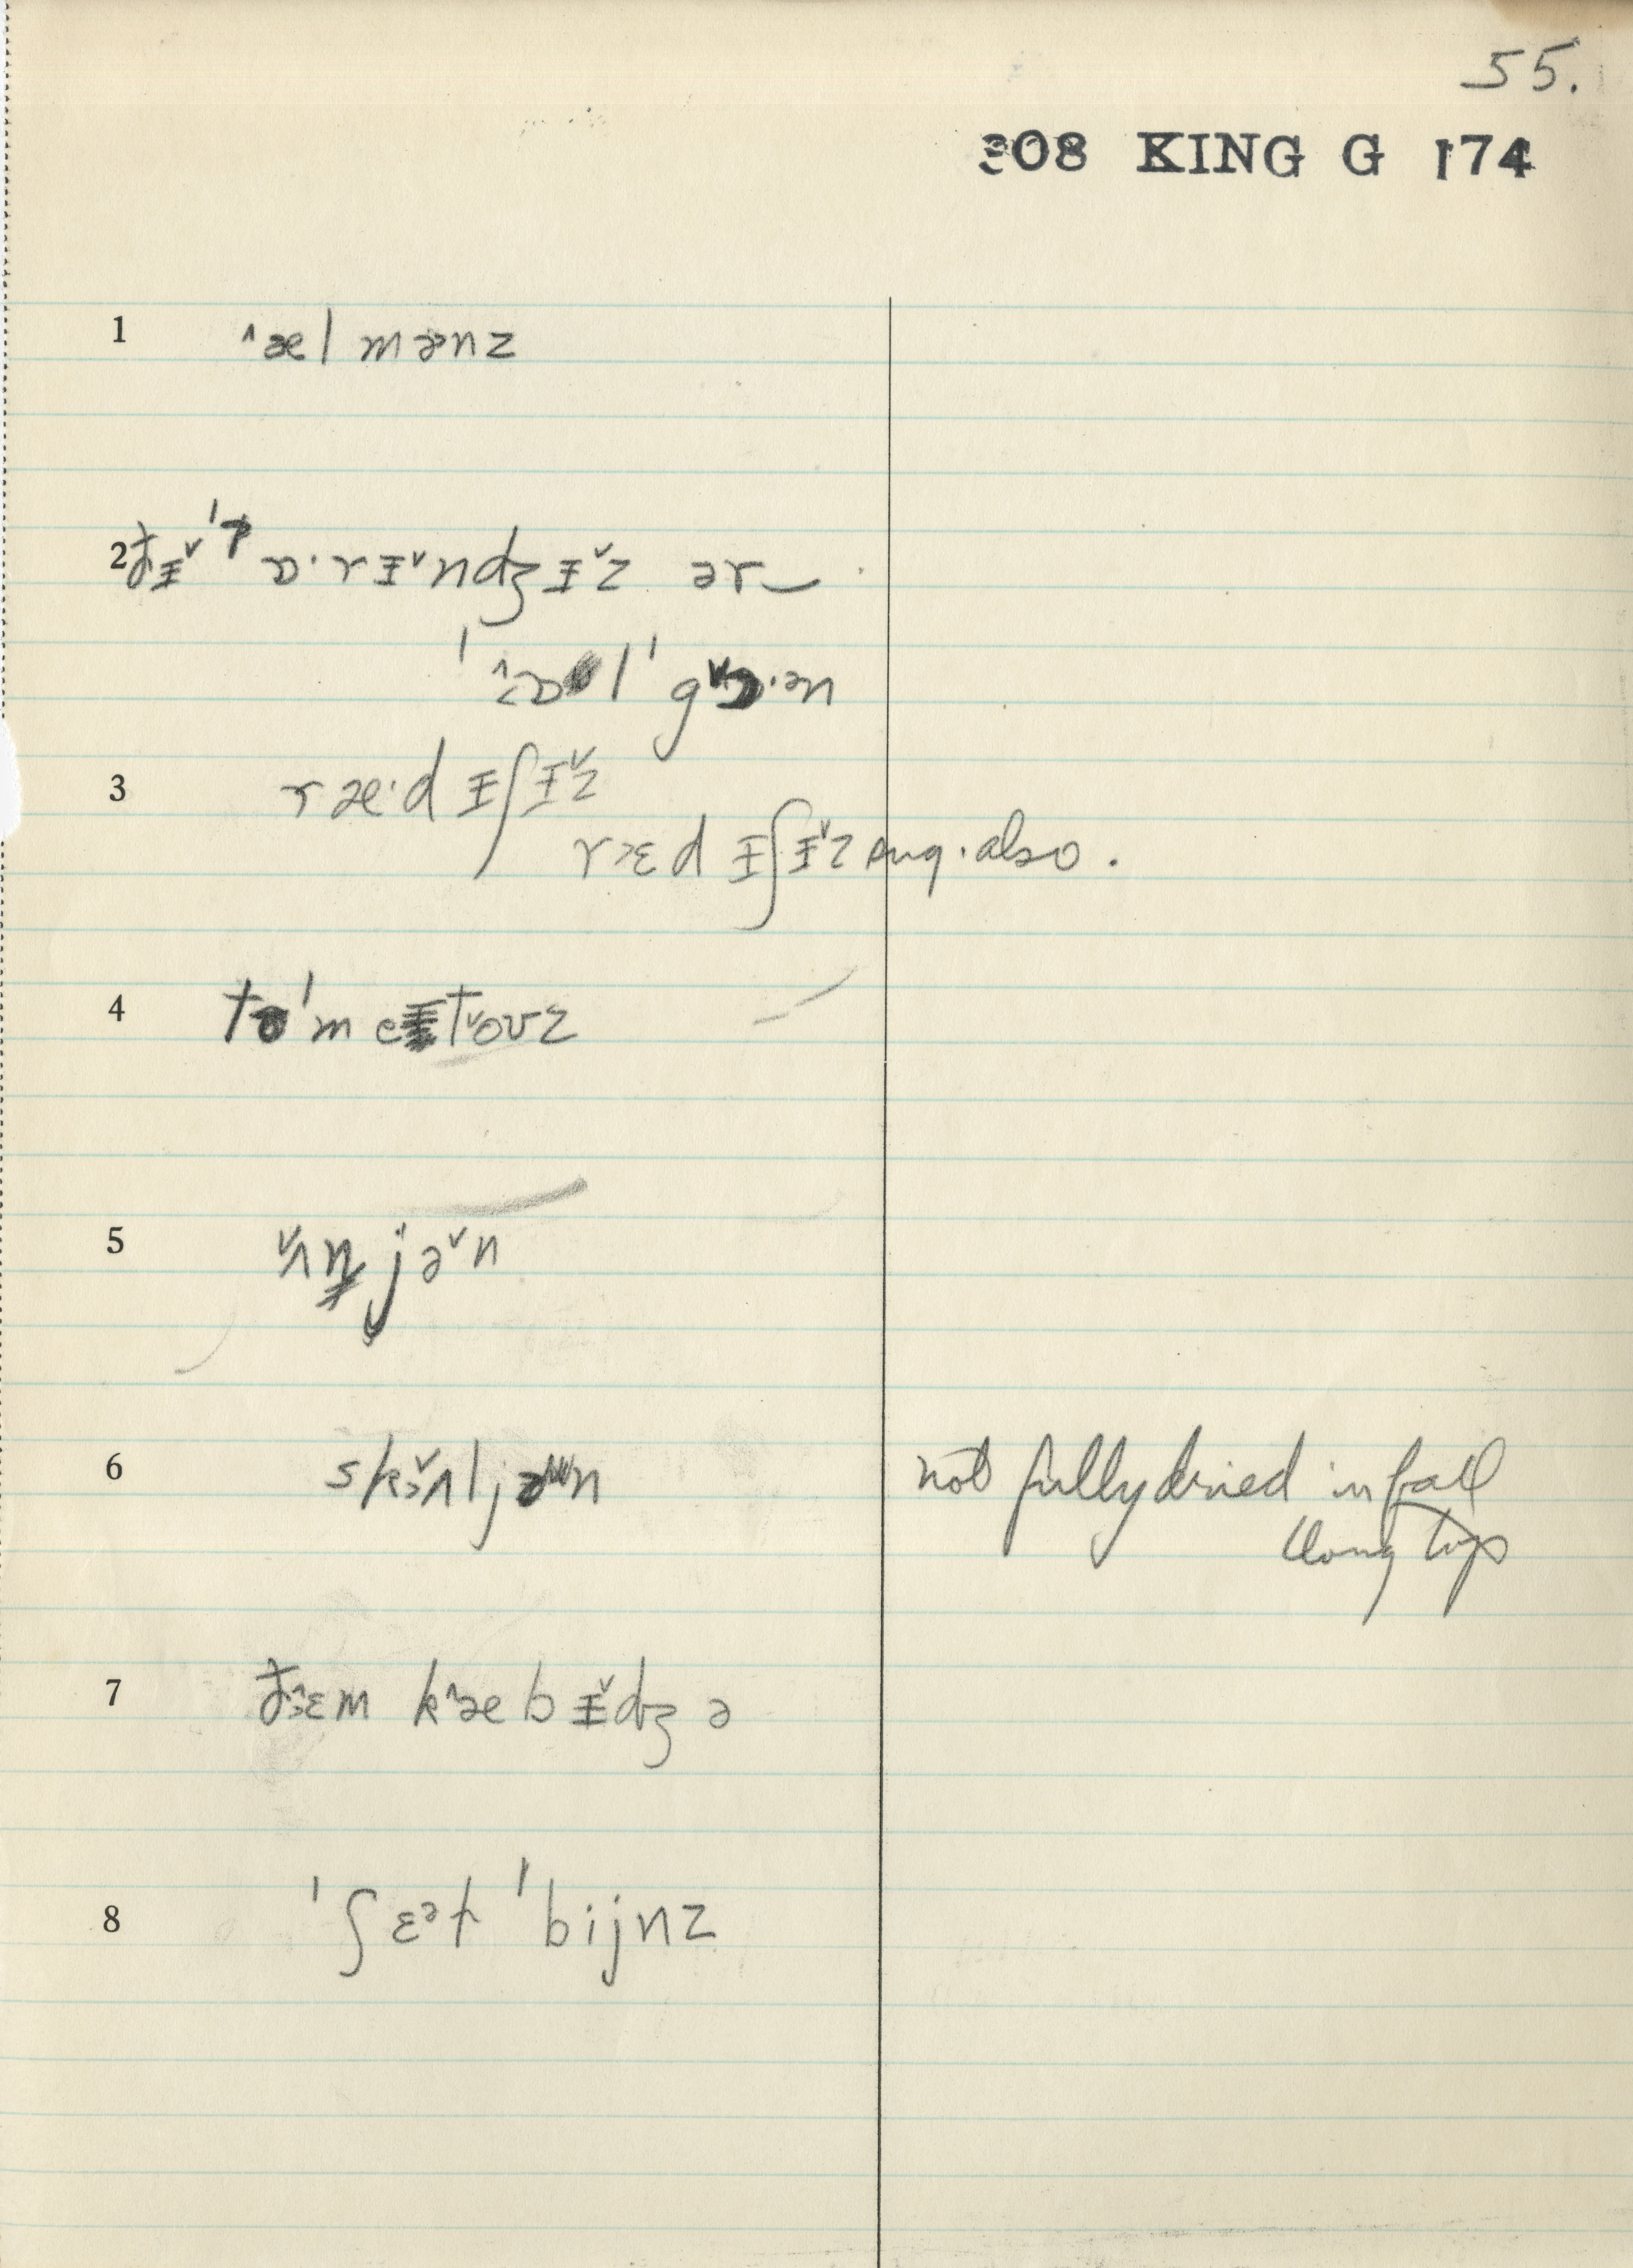 55.
308 KING G 174
1 ˄æl mənz
2 ðɪ˅ ˈɒ·rɪ˅ndʒɪ˅z ər‿
ˈ˄ɒl ˈg˅ɒ·ən
3 ræ·dɪʃɪ˅z
r˃ɛdɪʃɪ˅z sug. also.
4 təˈmet˅oʊz
5 ˅ʌnjə˅n
6 sk˃˅ʌljən not fully dried in fall
long tops
7 ð˃˄ɛm k˄æbɪ˅dʒə
8 ˈʃɛᵊt ˈbijnz